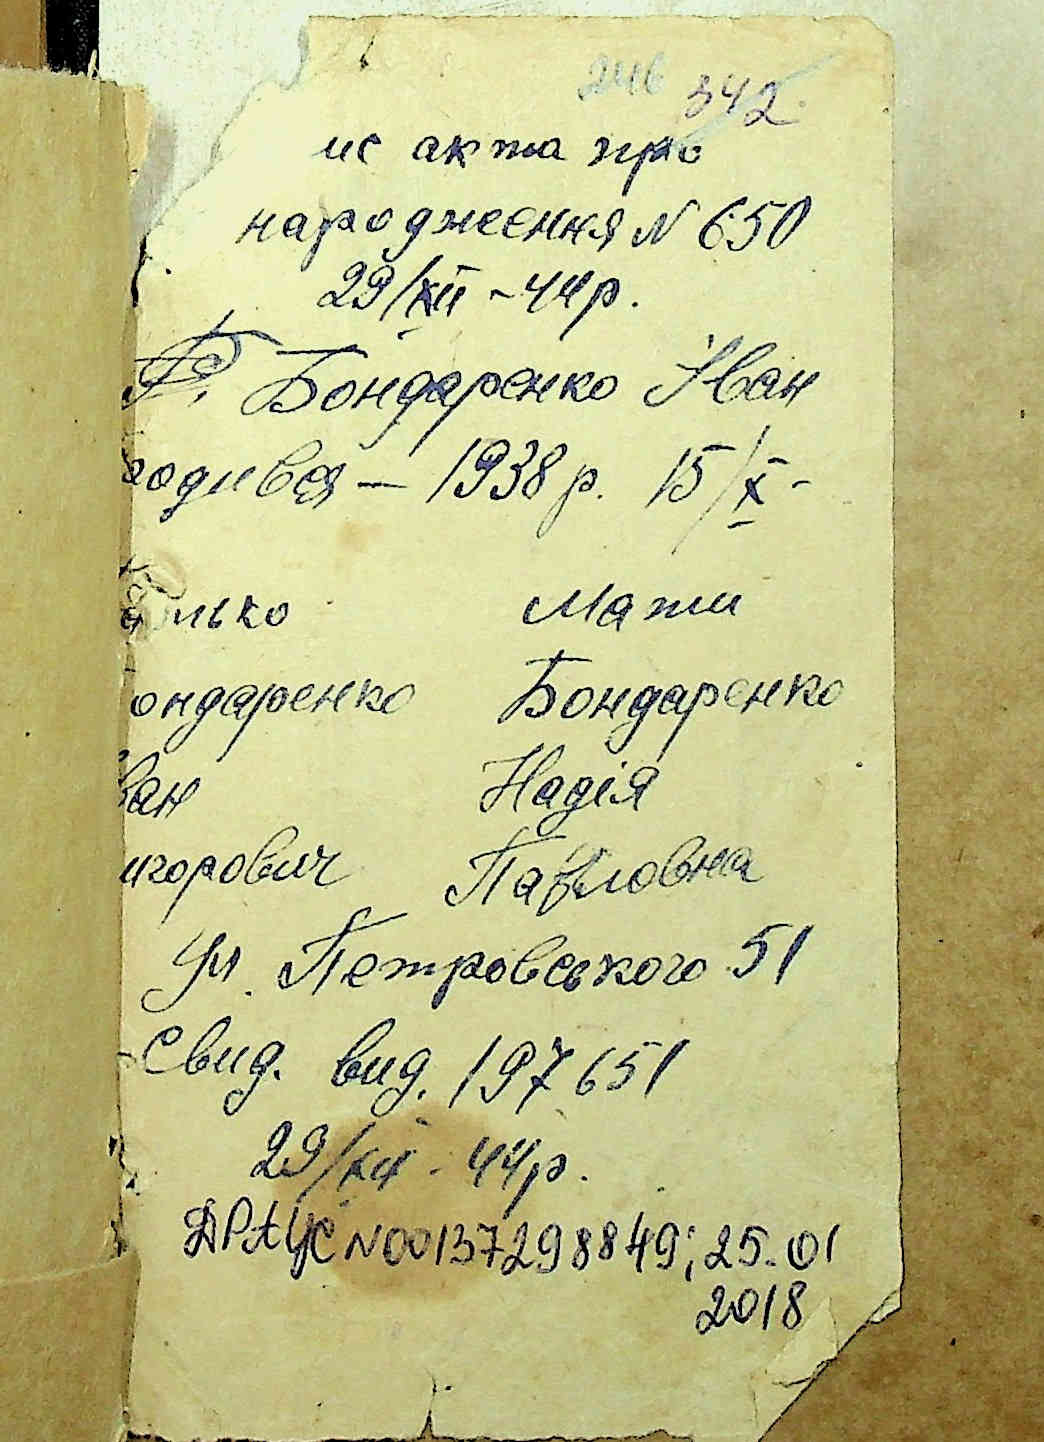 246 342
ис акта про
народження N 650
29/XII - 44р.
Бондаренко Іван
родився — 1938 р. 15/X -
тько Мати
ондаренко Бондаренко
ван Надія
игорович Павловна
Ул. Петровського 51
Свид. вид. 197651
29/XII - 44р.
ДРАЦС N00137298849; 25.01
2018